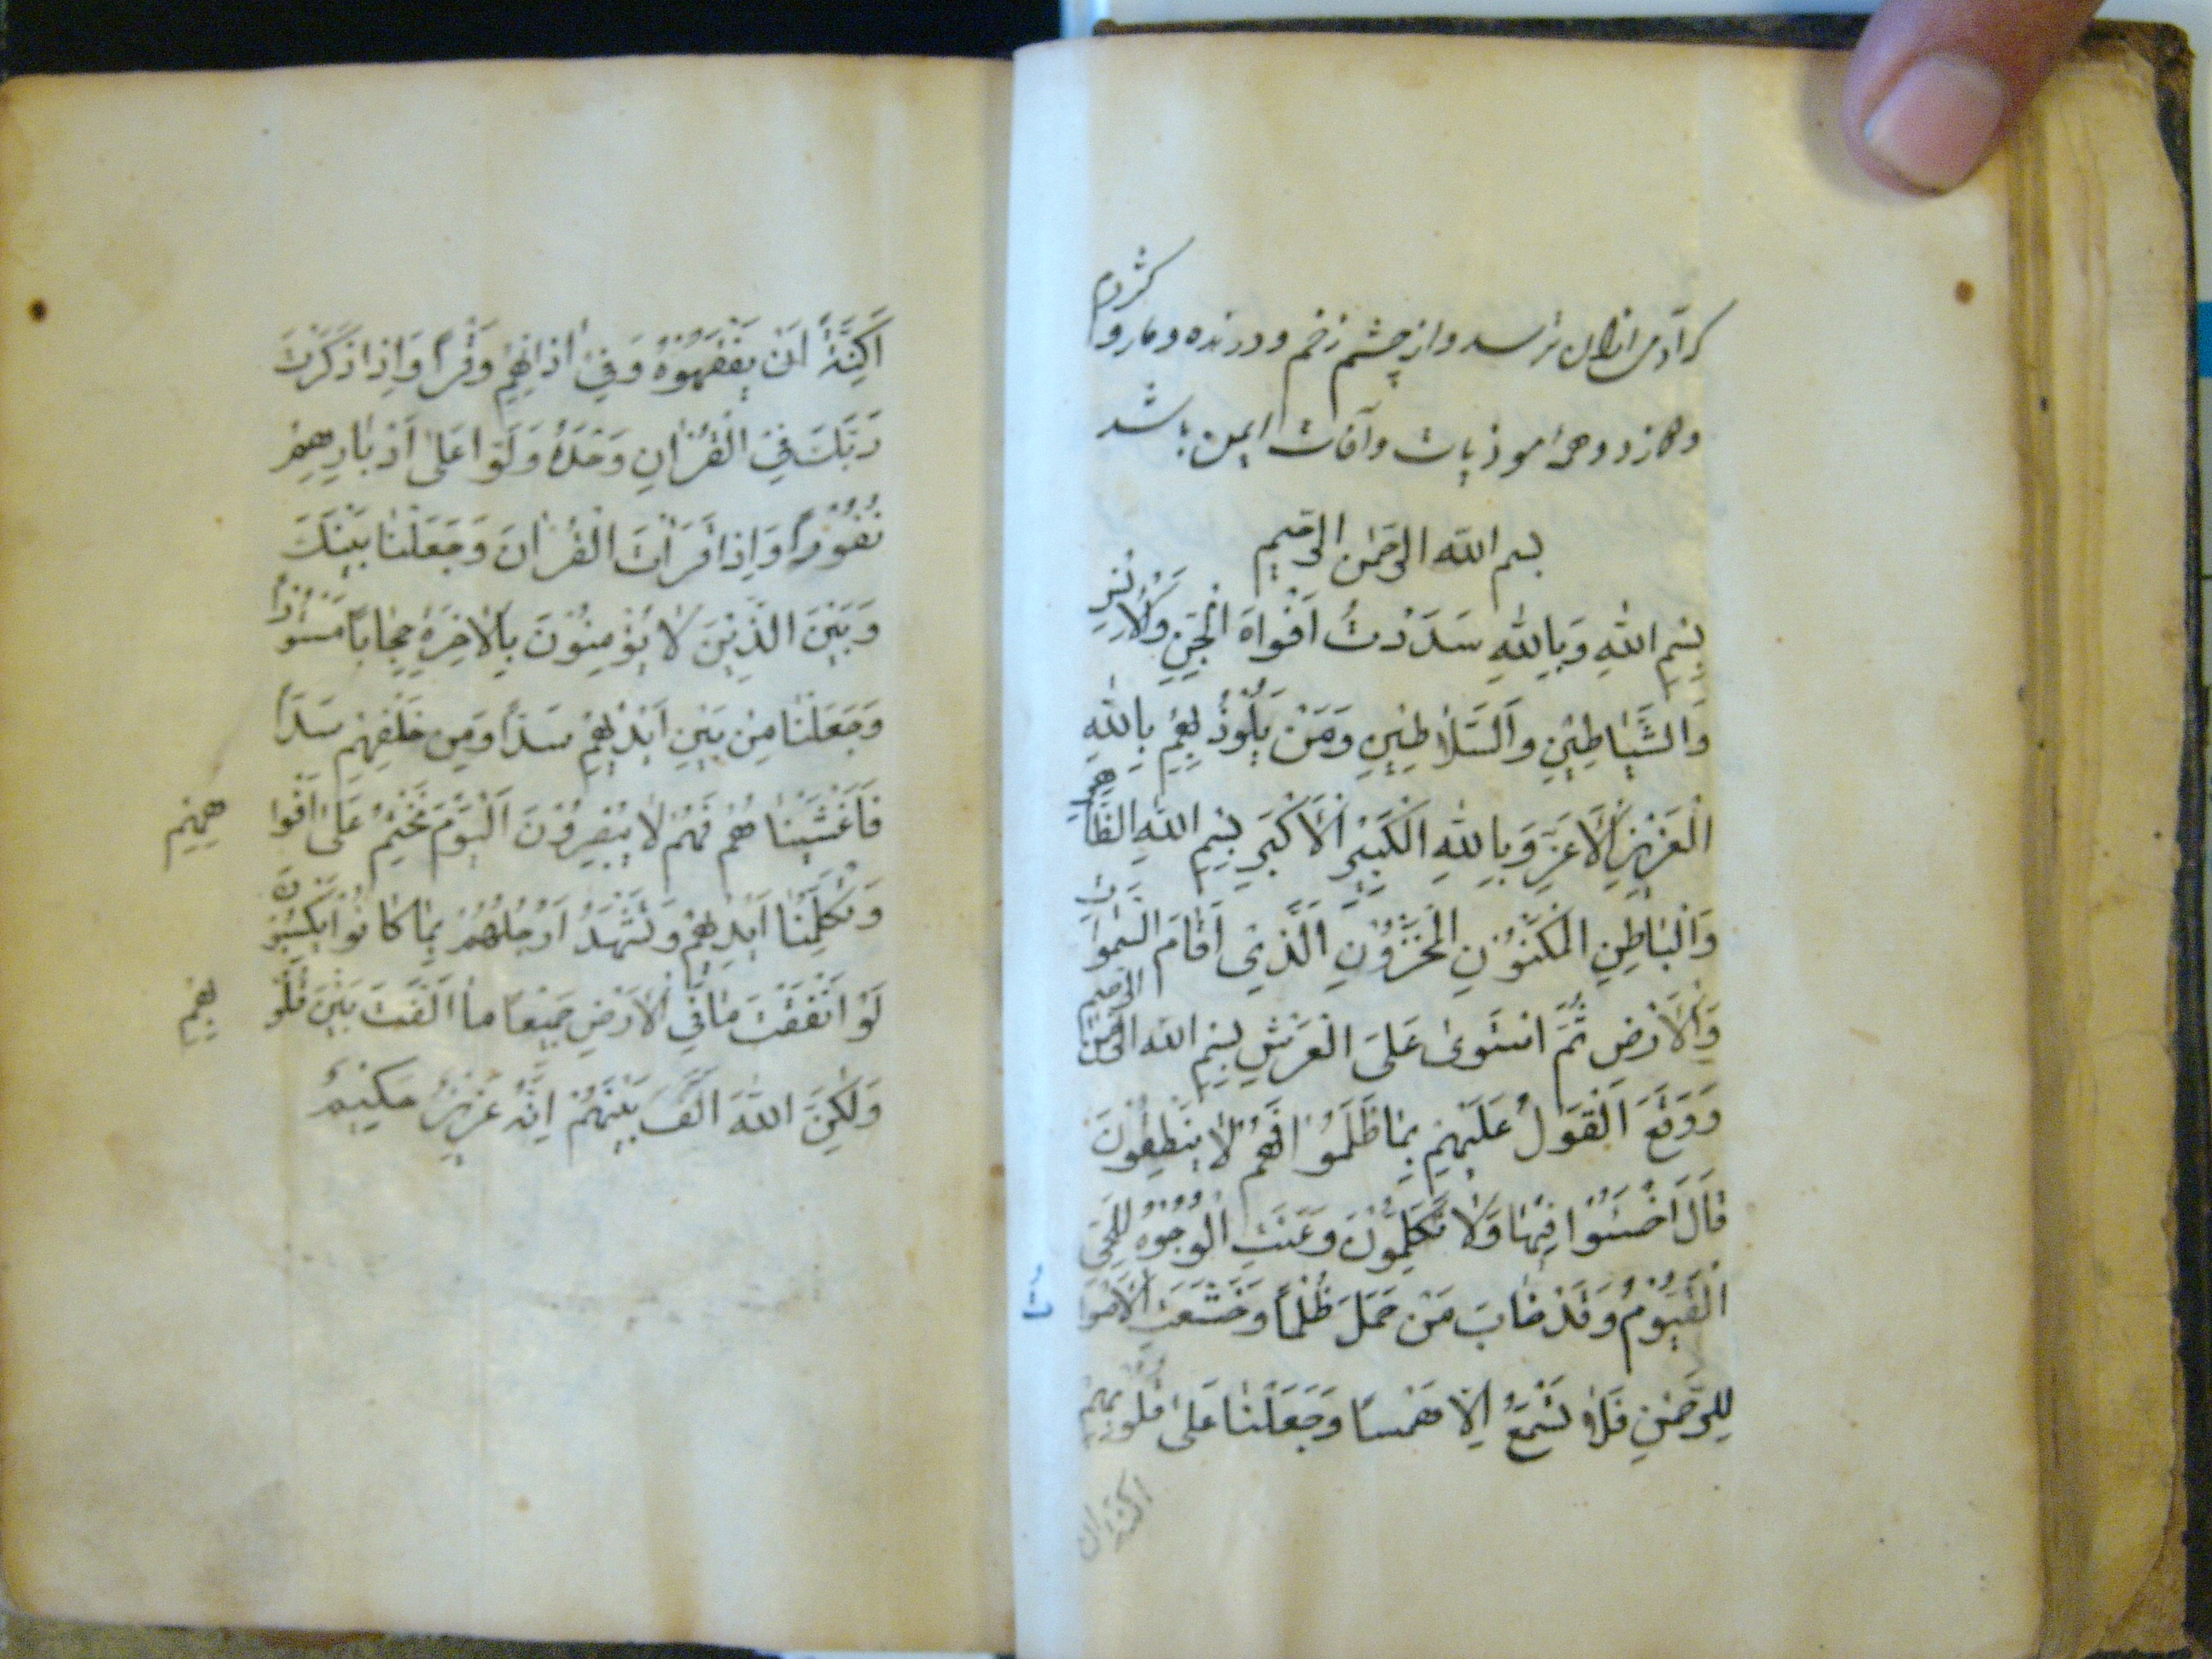 که آدمی از آن ترسد و از چشم زخم و درنده و مار و کژدم
و کازد و همه موذیات و آفات ایمن باشد
بسم الله الرحمن الرحیم
بِسْمِ اللهِ وَبِاللهِ سَدَدْتُ اَفْوَاهَ الْجِنِّ وَالْاِنْسِ
وَالشَّيَاطِيْنِ وَالسَّلَاطِيْنِ وَمَنْ يَلُوْذُ بِهِمْ بِاللهِ
الْعَزِيْزِ الْاَعَزِّ وَبِاللهِ الْكَبِيْرِ الْاَكْبَرِ بِسْمِ اللهِ الظَّاهِرِ
وَالْبَاطِنِ الْمَكْنُوْنِ الْمَخْزُوْنِ الَّذِيْ اَقَامَ السَّمٰوَاتِ
وَالْاَرْضَ ثُمَّ اسْتَوىٰ عَلَى الْعَرْشِ بِسْمِ الله الرحمن الرحيم
وَوَقَعَ الْقَوْلُ عَلَيْهِمْ بِمَا ظَلَمُوْا فَهُمْ لَا يَنْطِقُونَ
قَالَ اخْسَئُوْا فِيْهَا وَلَا تُكَلِّمُوْنَ وَعَنَتِ الْوُجُوْهُ لِلْحَيِّ
الْقَيُّوْمُ وَقَدْ خَابَ مَنْ حَمَلَ ظُلْمًا وَخَشَعَتِ الْاَصْوَاتُ
لِلرَّحْمٰنِ فَلَا تَسْمَعُ اِلَّا هَمْسًا وَجَعَلْنَا عَلىٰ قُلُوْبِهِمْ
اکنة ان
اَكِنَّةً اَنْ يَفْقَهُوْهُ وَفِيْ اٰذَانِهِمْ وَقْرًا وَاِذَا ذَكَرْتَ
رَبَّكَ فِي الْقُرْاٰنِ وَحْدَهُ وَلَّوْا عَلىٰ اَدْبَارِهِمْ
نُفُوْرًا وَاِذَا قَرَاْتَ الْقُرْاٰنَ وَجَعَلْنَا بَيْنَكَ
وَبَيْنَ الَّذِيْنَ لَا يُؤْمِنُوْنَ بِالْاٰخِرَةِ حِجَابًا مَسْتُوْرًا
وَجَعَلْنَا مِنْ بَيْنِ اَيْدِيْهِمْ سَدًّا وَمِنْ خَلْفِهِمْ سَدًّا
فَاَغْشَيْنَا هُمْ فَهُمْ لَا يُبْصِرُوْنَ اَلْيَوْمَ نَخْتِمُ عَلىٰ اَفْوَا هِهِمْ
وَتُكَلِّمُنَا اَيْدِيْهِمْ وَتَشْهَدُ اَرْجُلُهُمْ بِمَا كَانُوْا يَكْسِبُوْنَ
لَوْ اَنْفَقْتَ مَا فِي الْاَرْضِ جَمِيْعًا مَا اَلَّفْتَ بَيْنَ قُلُوْ بِهِمْ
وَلٰكِنَّ اللهَ اَلَّفَ بَيْنَهُمْ اِنَّهُ عَزِيْزٌ حَكِيْمٌ